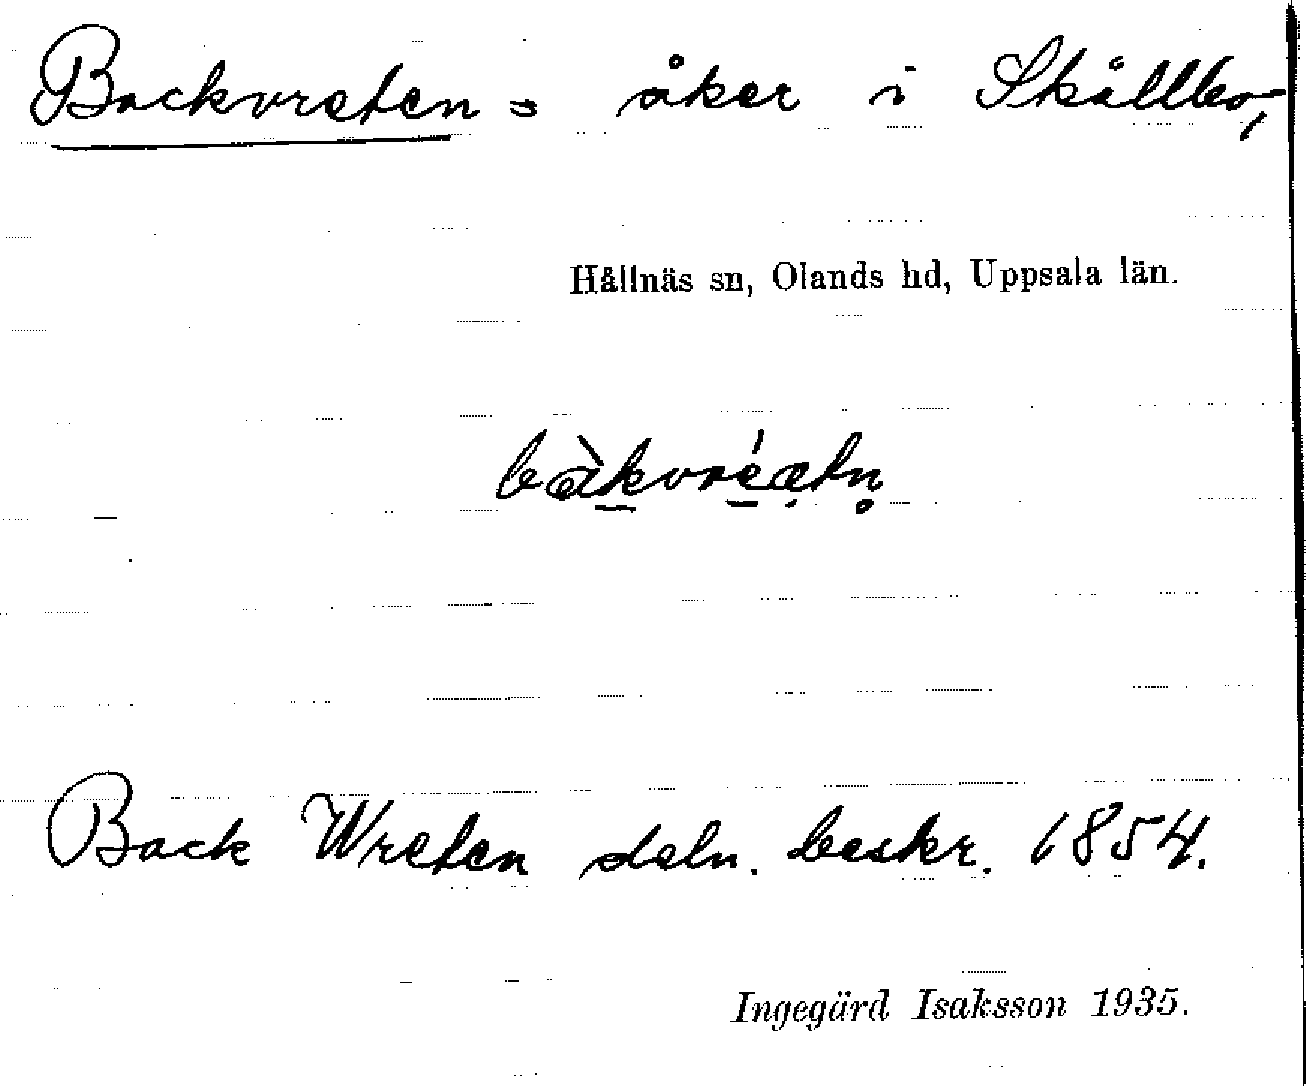 Backvreten = åker i Skållbo,
Hållnäs sn, Olands hd, Uppsala län.
bàkvréætn̥
Back Wreten deln. beskr. 1854.
Ingegärd Isaksson 1935.